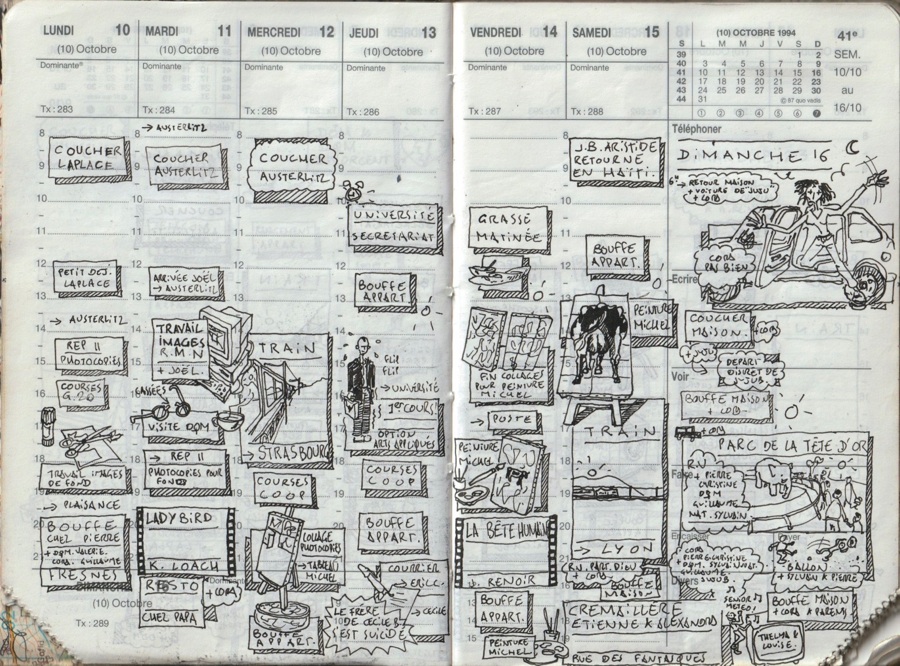 LUNDI 10
(10) Octobre
Dominante®
Tx : 283
8
9
COUCHER
LAPLACE
10
11
12
PETIT DEJ.
LAPLACE
13
→ AUSTERLITZ
14
REP II
PHOTOCOPIES
15
COURSES
G.20
16
17
18
TRAVAIL IMAGES
DE FOND
19
→ PLAISANCE
20
BOUFFE
CHEZ PIERRE
21
FRESNES
DIMANCHE
(10) Octobre
Tx : 289
MARDI 11
(10) Octobre
Dominante
Tx : 284
→ AUSTERLITZ
COUCHER
AUSTERLITZ
ARRIVÉE JOËL
→ AUSTERLITZ
TRAVAIL
IMAGES
R.M.N
+ JOËL.
VISITE DOM
→ REP II
PHOTOCOPIES POUR
FOND
LADYBIRD
K. LOACH
RESTO
+ CORA
CHEZ PAPA
MERCREDI 12
(10) Octobre
Dominante
Tx : 285
COUCHER
AUSTERLITZ
TRAIN
→ STRASBOURG
COURSES
COOP
COLLAGE
PHOTOCOPIES
→ TABLEAU
MICHEL
BOUFFE
APPART.
JEUDI 13
(10) Octobre
Dominante
Tx : 286
UNIVERSITÉ
SECRETARIAT
BOUFFE
APPART.
FLIP
FLIP
→ UNIVERSITÉ
1er COURS
OPTION
ARTS APPLIQUÉS
COURSES
COOP
BOUFFE
APPART.
COURRIER
ERIC.
→ CECILE
LE FRÈRE
DE CECILE
S'EST SUICIDÉ
VENDREDI 14
(10) Octobre
Dominante
Tx : 287
GRASSE
MATINÉE
FIN COLLAGES
POUR PEINTURE
MICHEL
→ POSTE
PEINTURE
MICHEL
LA BÊTE HUMAINE
J. RENOIR
BOUFFE
APPART.
PEINTURE
MICHEL
SAMEDI 15
(10) Octobre
Dominante
Tx : 288
J.B. ARISTIDE
RETOURNE
EN HAÏTI.
BOUFFE
APPART.
PEINTURE
MICHEL
TRAIN
→ LYON
+ CORA
BOUFFE
MAISON
CREMAILLERE
ETIENNE & ALEXANDRA
RUE DES FANTASQUES
(10) OCTOBRE 1994
S L M M J V S D
39 1 2
40 3 4 5 6 7 8 9
41 10 11 12 13 14 15 16
42 17 18 19 20 21 22 23
43 24 25 26 27 28 29 30
44 31
© 87 quo vadis
① ② ③ ④ ⑤ ⑥ ❼
41e
SEM.
10/10
au
16/10
Téléphoner
DIMANCHE 16
→ RETOUR MAISON
+ VOITURE DE JUJU
+ CORA
CORA
PAS BIEN
Ecrire
COUCHER
MAISON.
+ CORA
+ JUJU
DEPART
DISCRET DE
JUJU.
Voir
BOUFFE MAISON
+ CORA
+ CORA
PARC DE LA TÊTE D'OR
Faire
+ PIERRE
CHRISTINE
DOM
GUILLAUME
NAT. SYLVAIN
Encaisser
Payer
CORA
PIERRE-CHRISTINE
GUILLAUME
JUJU.
BALLON
+ SYLVAIN & PIERRE
Divers
BOUFFE MAISON
+ CORA & PARENTS
THELMA &
LOUISE.